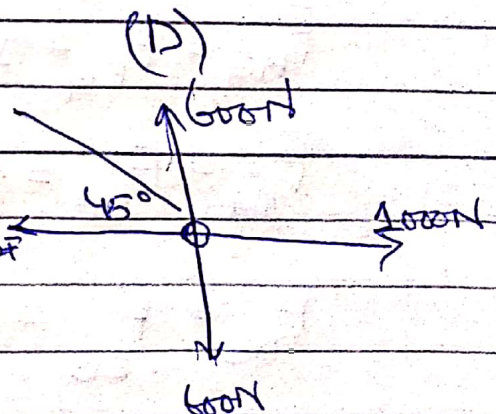 (D)
600N
45°
1000N
F
600N